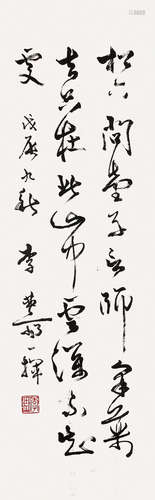 松下問童子言師采藥
去只在此山中雲深不知
處 戊辰九秋 李